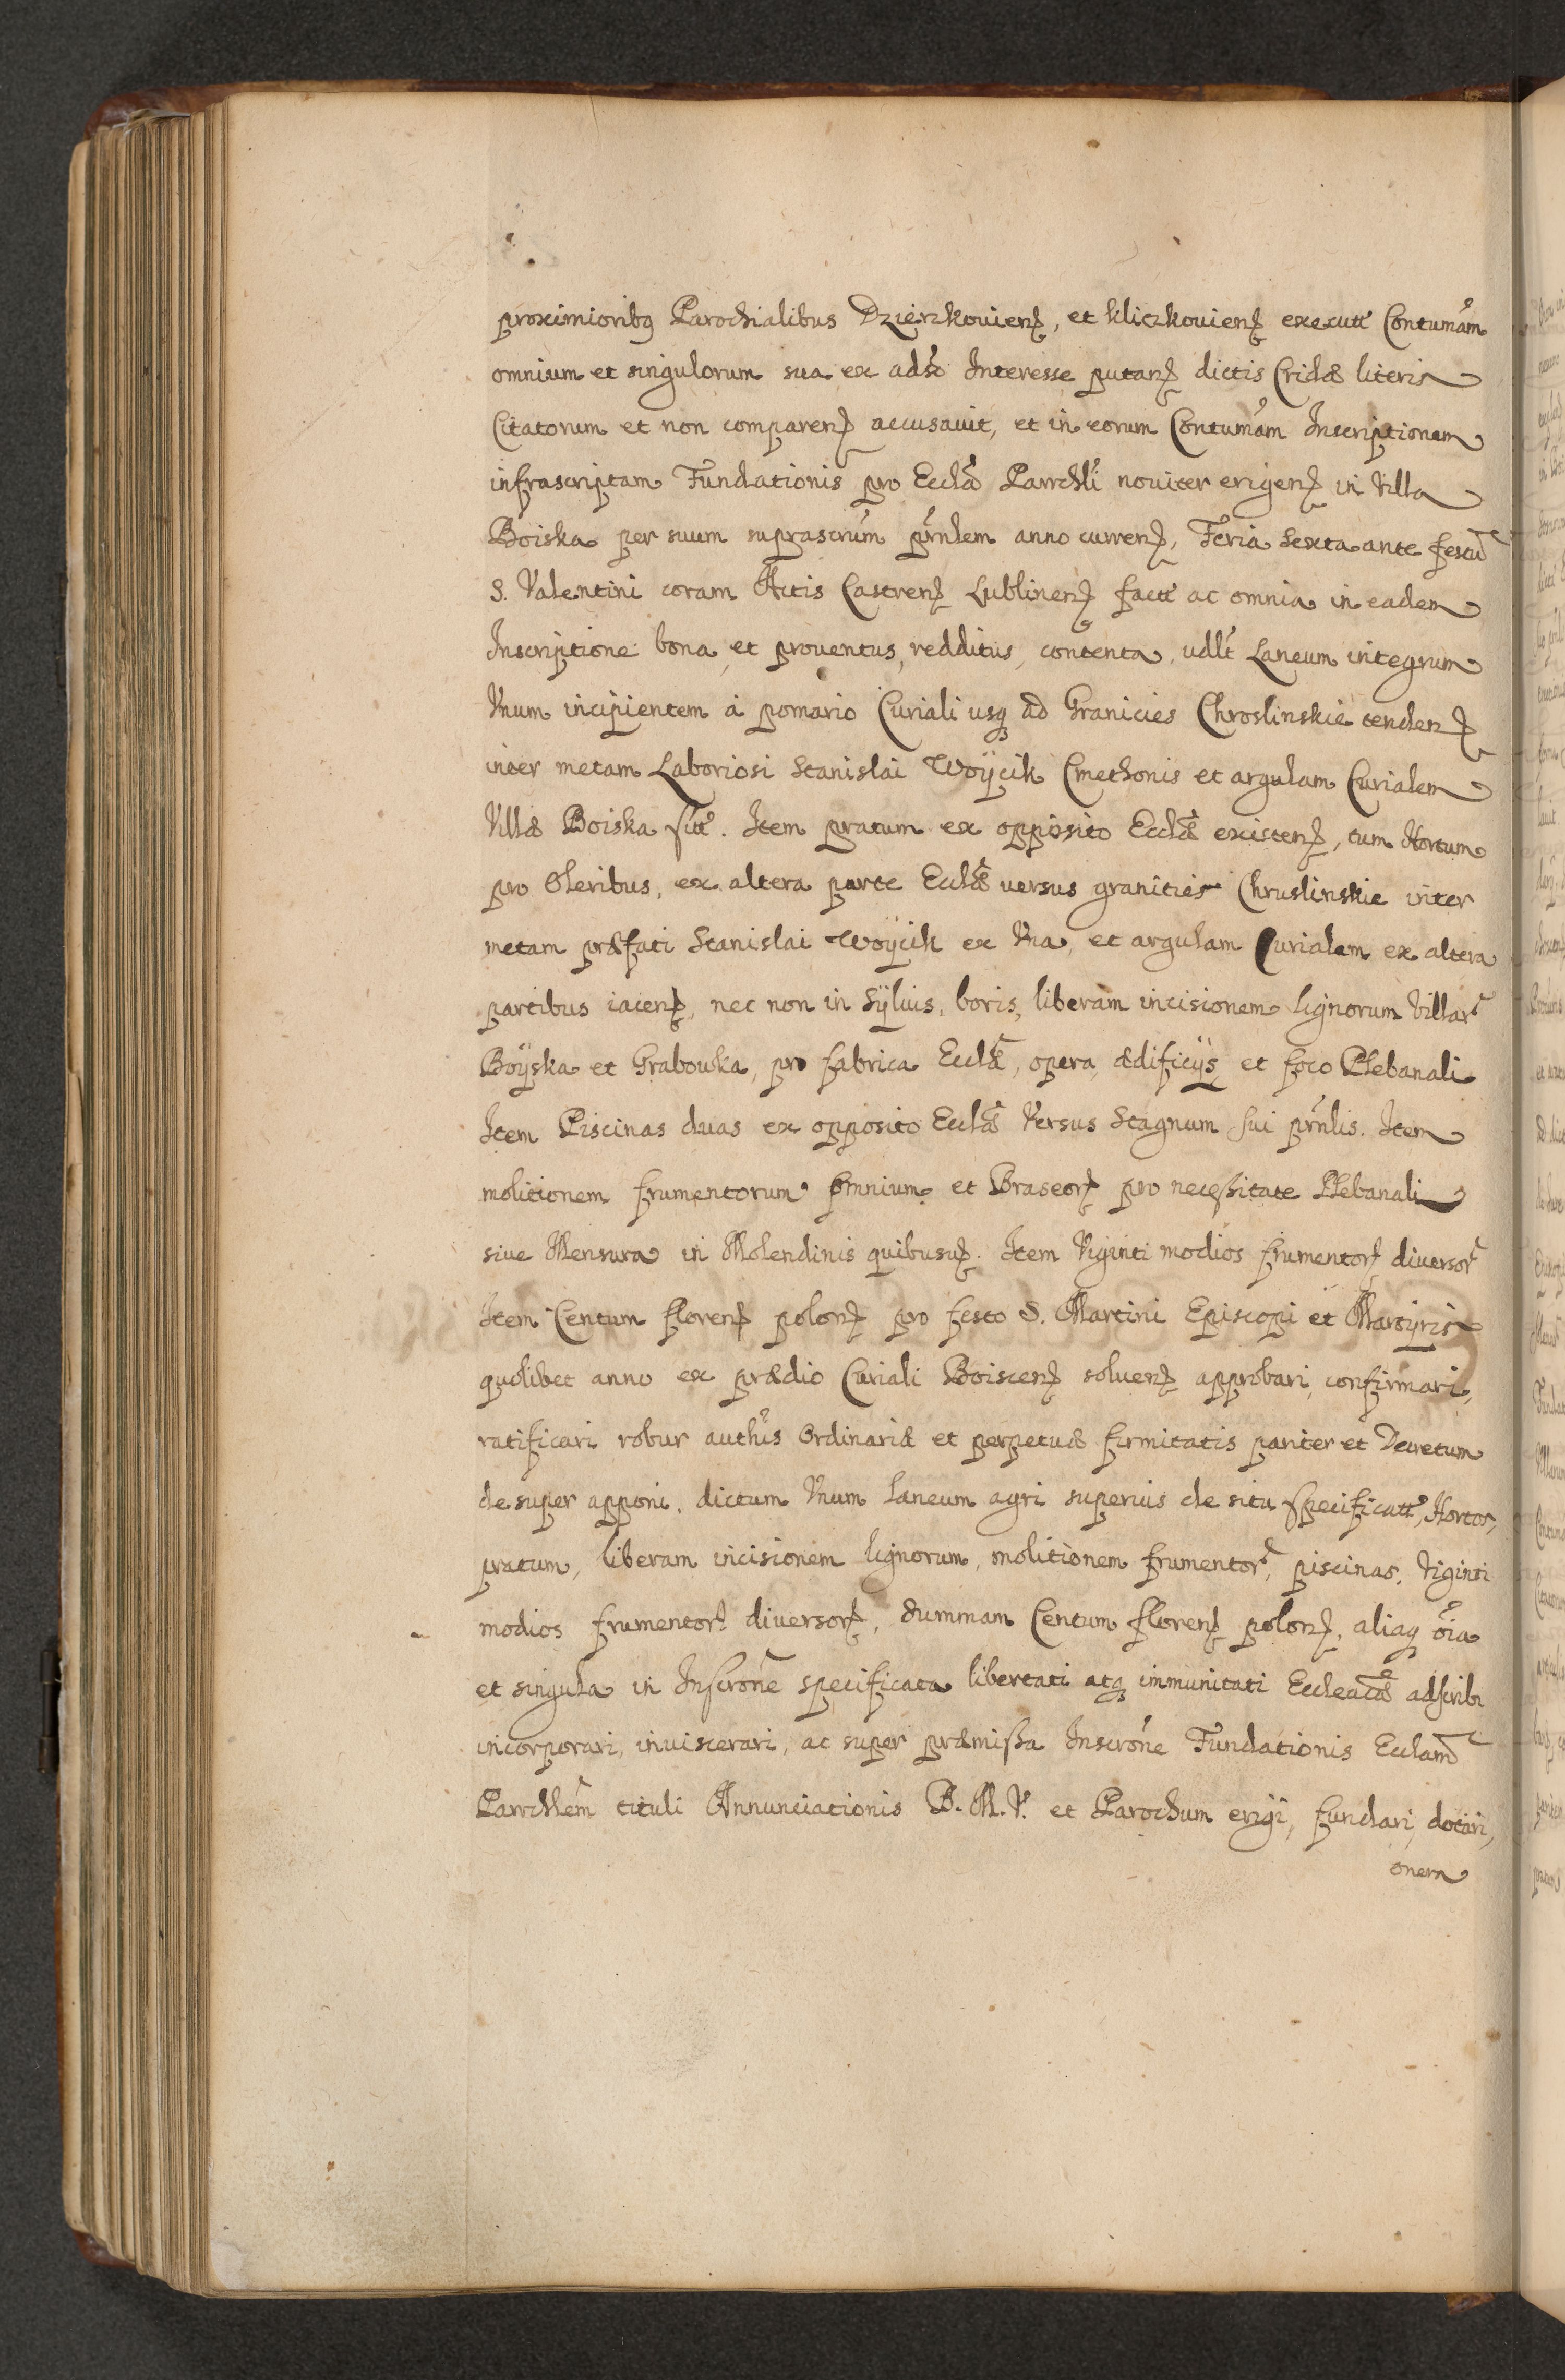 proximioribq Parochialibus Dzierzkouienȝ, et Kliczkouienȝ executt Contumãm
omnium et singulorum sua ex adso Interesse putanȝ dictis Cridæ literis
Citatorum et non comparenȝ accusauit, et in eorum Contumãm Inscriptionem
infrascriptam Fundationis pro Ecclã Parrchli nouiter erigenȝ in Villa
Boiska per suum suprascrúm prńlem anno currenȝ, Feria Sexta ante festũ
S. Valentini coram Actis Castrenȝ Lublinenȝ factt ac omnia in eadem
Inscriptione bona et prouentus, redditus, contenta, udlt Laneum integrum
Vnum incipientem á pomario Curiali usq ad Granicies Chroslinskie tendenȝ
inter metam Laboriosi Stanislai Woÿcik Cmethonis et argulam Curialem
Villæ Boiska sitt. Item pratum ex opposito Ecclæ existenȝ, tum Hortum
pro Oleribus, ex altera parte Ecclæ uersus granities Chruslinskie inter
metam præfati Stanislai Woÿcik ex Vna, et argulam Curialem ex altera
partibus iacenȝ, nec non in Sÿluis, boris, liberam incisionem lignorum Villar
Boÿska et Grabouka, pro fabrica Ecclæ, opera, ædificijs et foco Plebanali
Item Piscinas duas ex opposito Ecclæ Versus Stagnum sui prńlis. Item
molitionem frumentorum omnium et Braseorȝ pro necessitate Plebanali
siue Mensura in Molendinis quibusuȝ. Item Viginti modios frumentorȝ diuersor
Item Centum florenȝ polonȝ pro festo S. Martini Episcopi et Martÿris
quolibet anno ex prædio Curiali Boiscenȝ soluenȝ approbari, confirmari,
ratificari robur authis Ordinariæ et perpetuæ firmitatis pariter et Decretum
desuper apponi, dictum Vnum laneum agri superius de situ specificatt, Hortos,
pratum, liberam incisionem lignorum, molitionem frumentor, piscinas, Viginti
modios frumentorȝ diuersorȝ, Summam Centum florenȝ polonȝ, aliaq õia
et singula in Inscrone specificata libertati atq immunitati Eccleacæ adscribi
incorporari, inuiscerari, ac super præmissa Inscrone Fundationis Ecclam
Parrchlem tituli Annunciationis B. M. V. et Parochum erigi, fundari, dotari,
onera